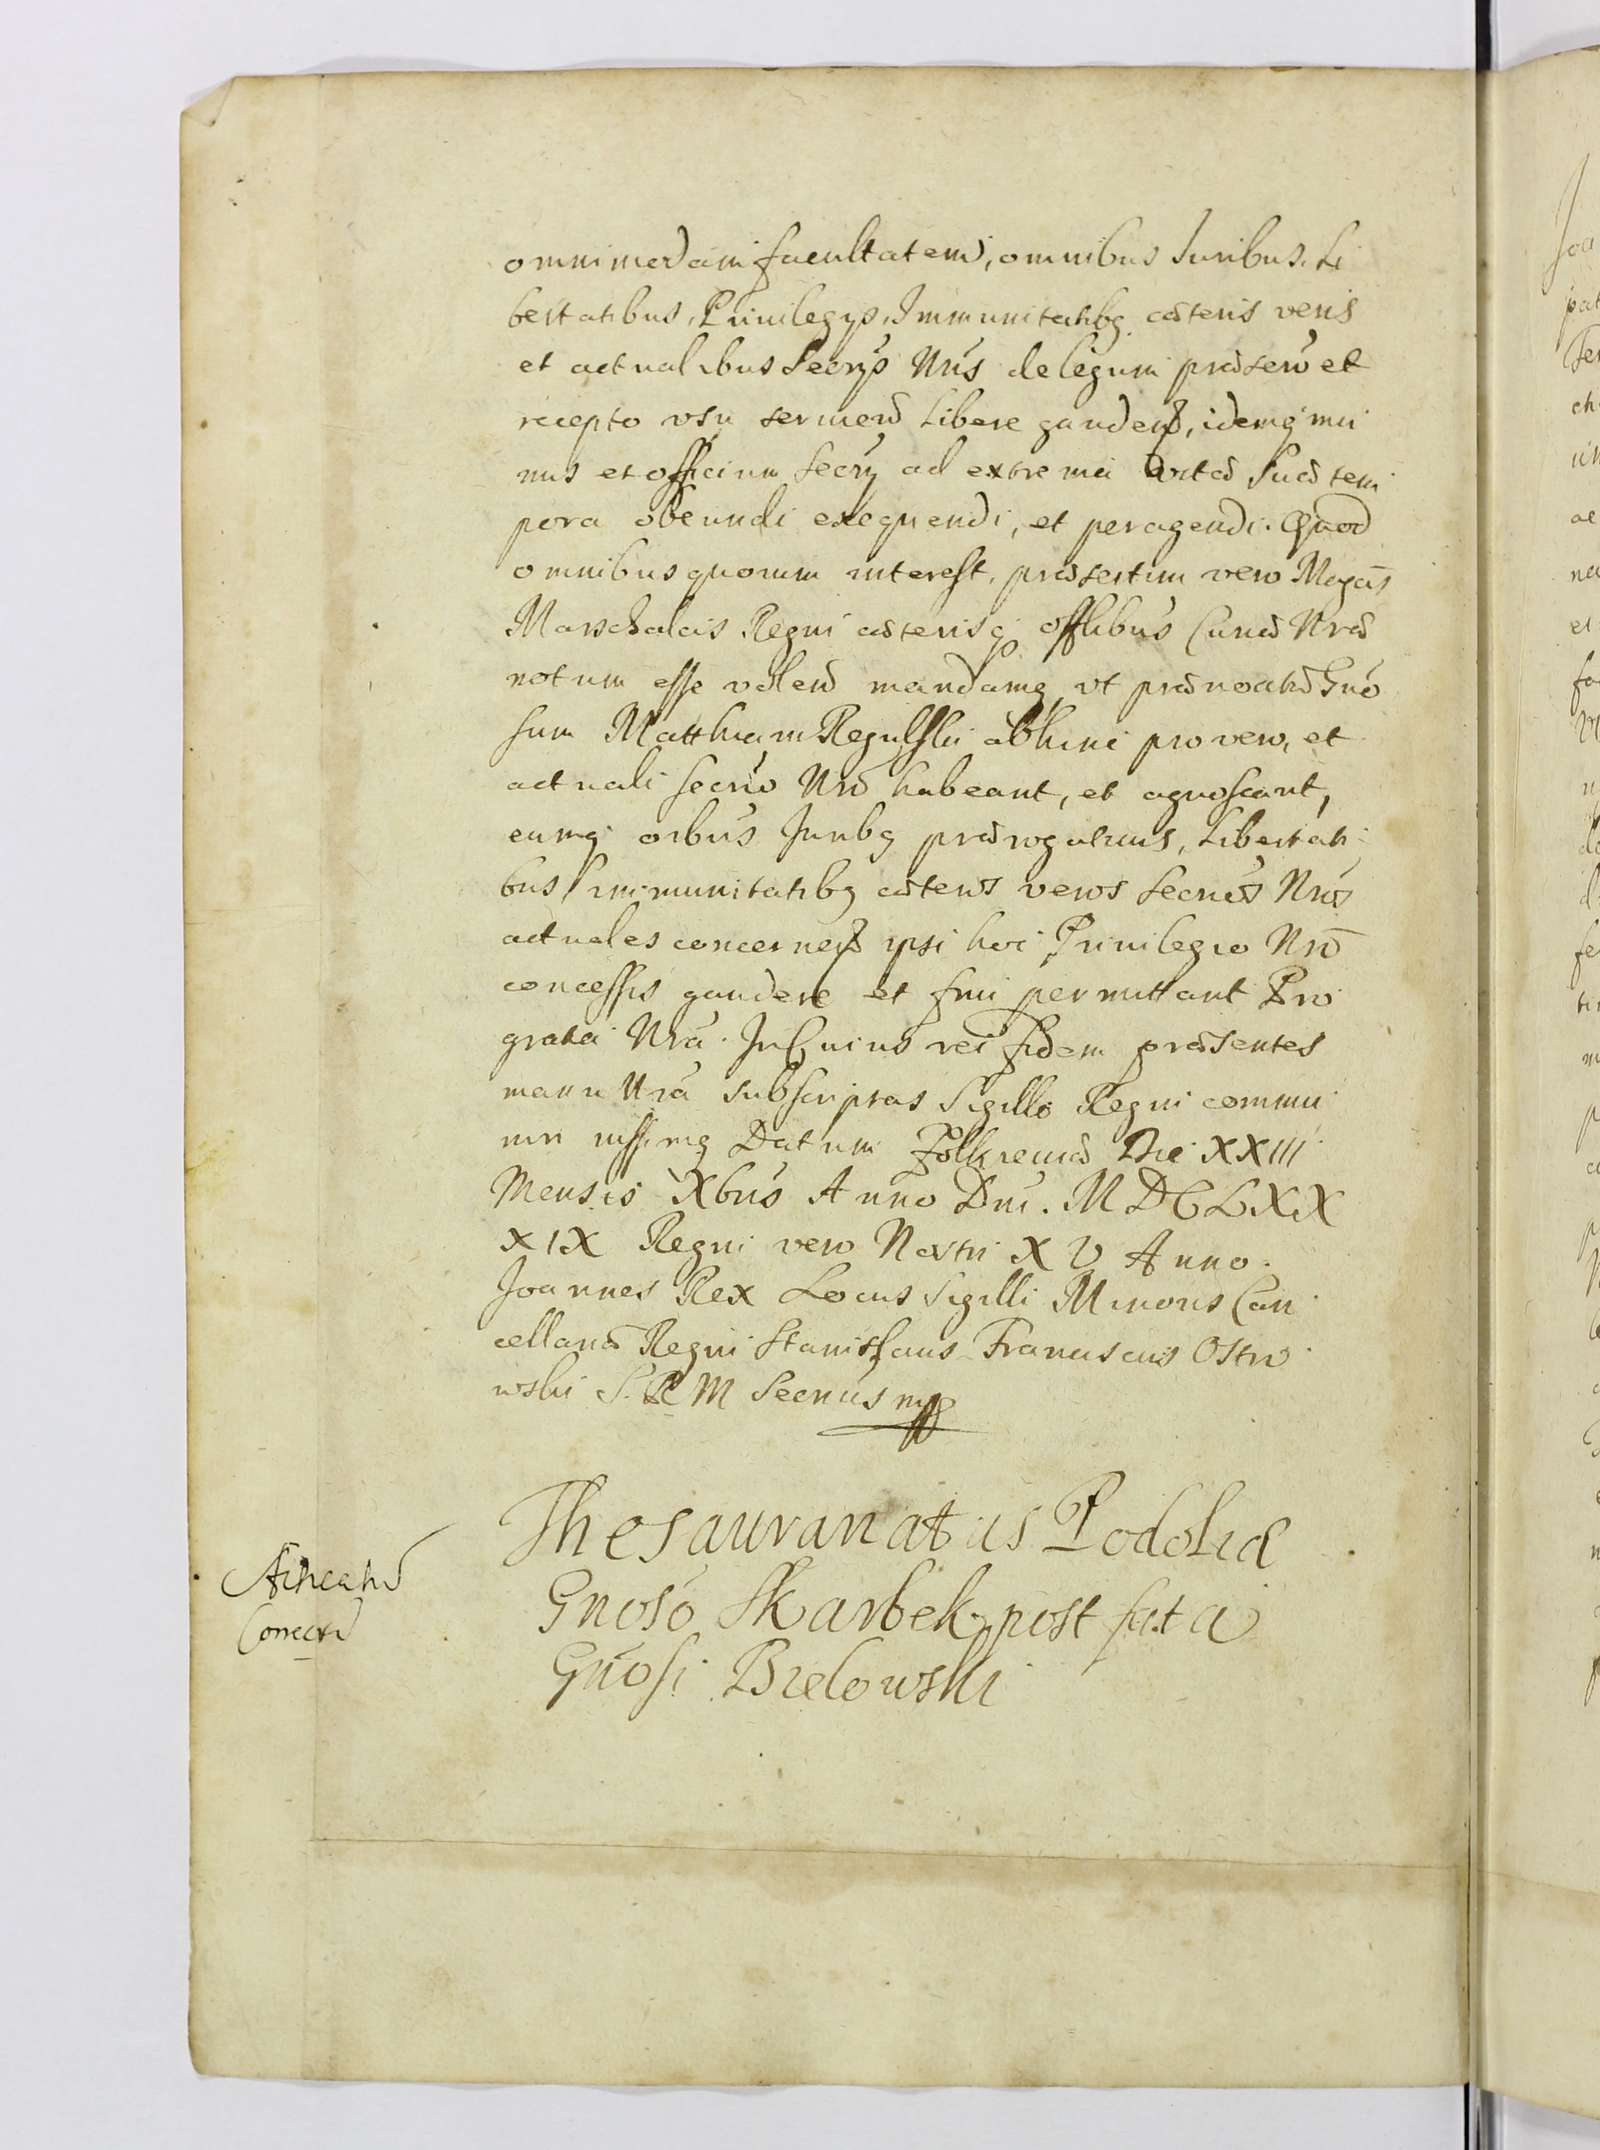 omnimodam facultatem, omnibus Juribus, Li
bertatibus, Priuilegijs, Immunitatibg cæteris veris
et actualibus Secrijs Nris de legum præscrō et
recepto vsu seruiend Libere gaudend, idemq mu
nus et officium Secrij ad extrema vitæ suæ tem
pora obeundi exequendi, et peragendi. Quod
omnibus quorum interest, præsertim vero Mgcis
Marschalcis Regni cæterisq offlibus Curiæ Nræ
notum esse volen mandamg vt prænoatū Gnō
sum Matthiam Regulski abhinc pro vero, et
actuali Secrio Nro habeant, et agnoscant,
eumq oibus Juribg prærogatiuis, Libertati
bus Immunitatibg cæteros veros Secrios Nros
actuales concernen ipsi hoc Priuilegio Nrō
concessis gaudere et frui permittant Pro
gratia Nrā. In Cuius rei fidem præsentes
manu Nrā subscriptas Sigillo Regni commu
niri iussimg Datum Zolkieuiæ Die XXIII
Mensis Xbris Anno Dni. MDCLXX
XIX Regni vero Nostri XV Anno.
Joannes Rex Locus Sigilli Minoris Can
cellariæ Regni Stanislaus Franciscus Ostro
wski S. R M Secrius mp
Thesaurariatus Podoliæ
Gnoso Skarbek post fata
Gnosi Bielowski
Correctū